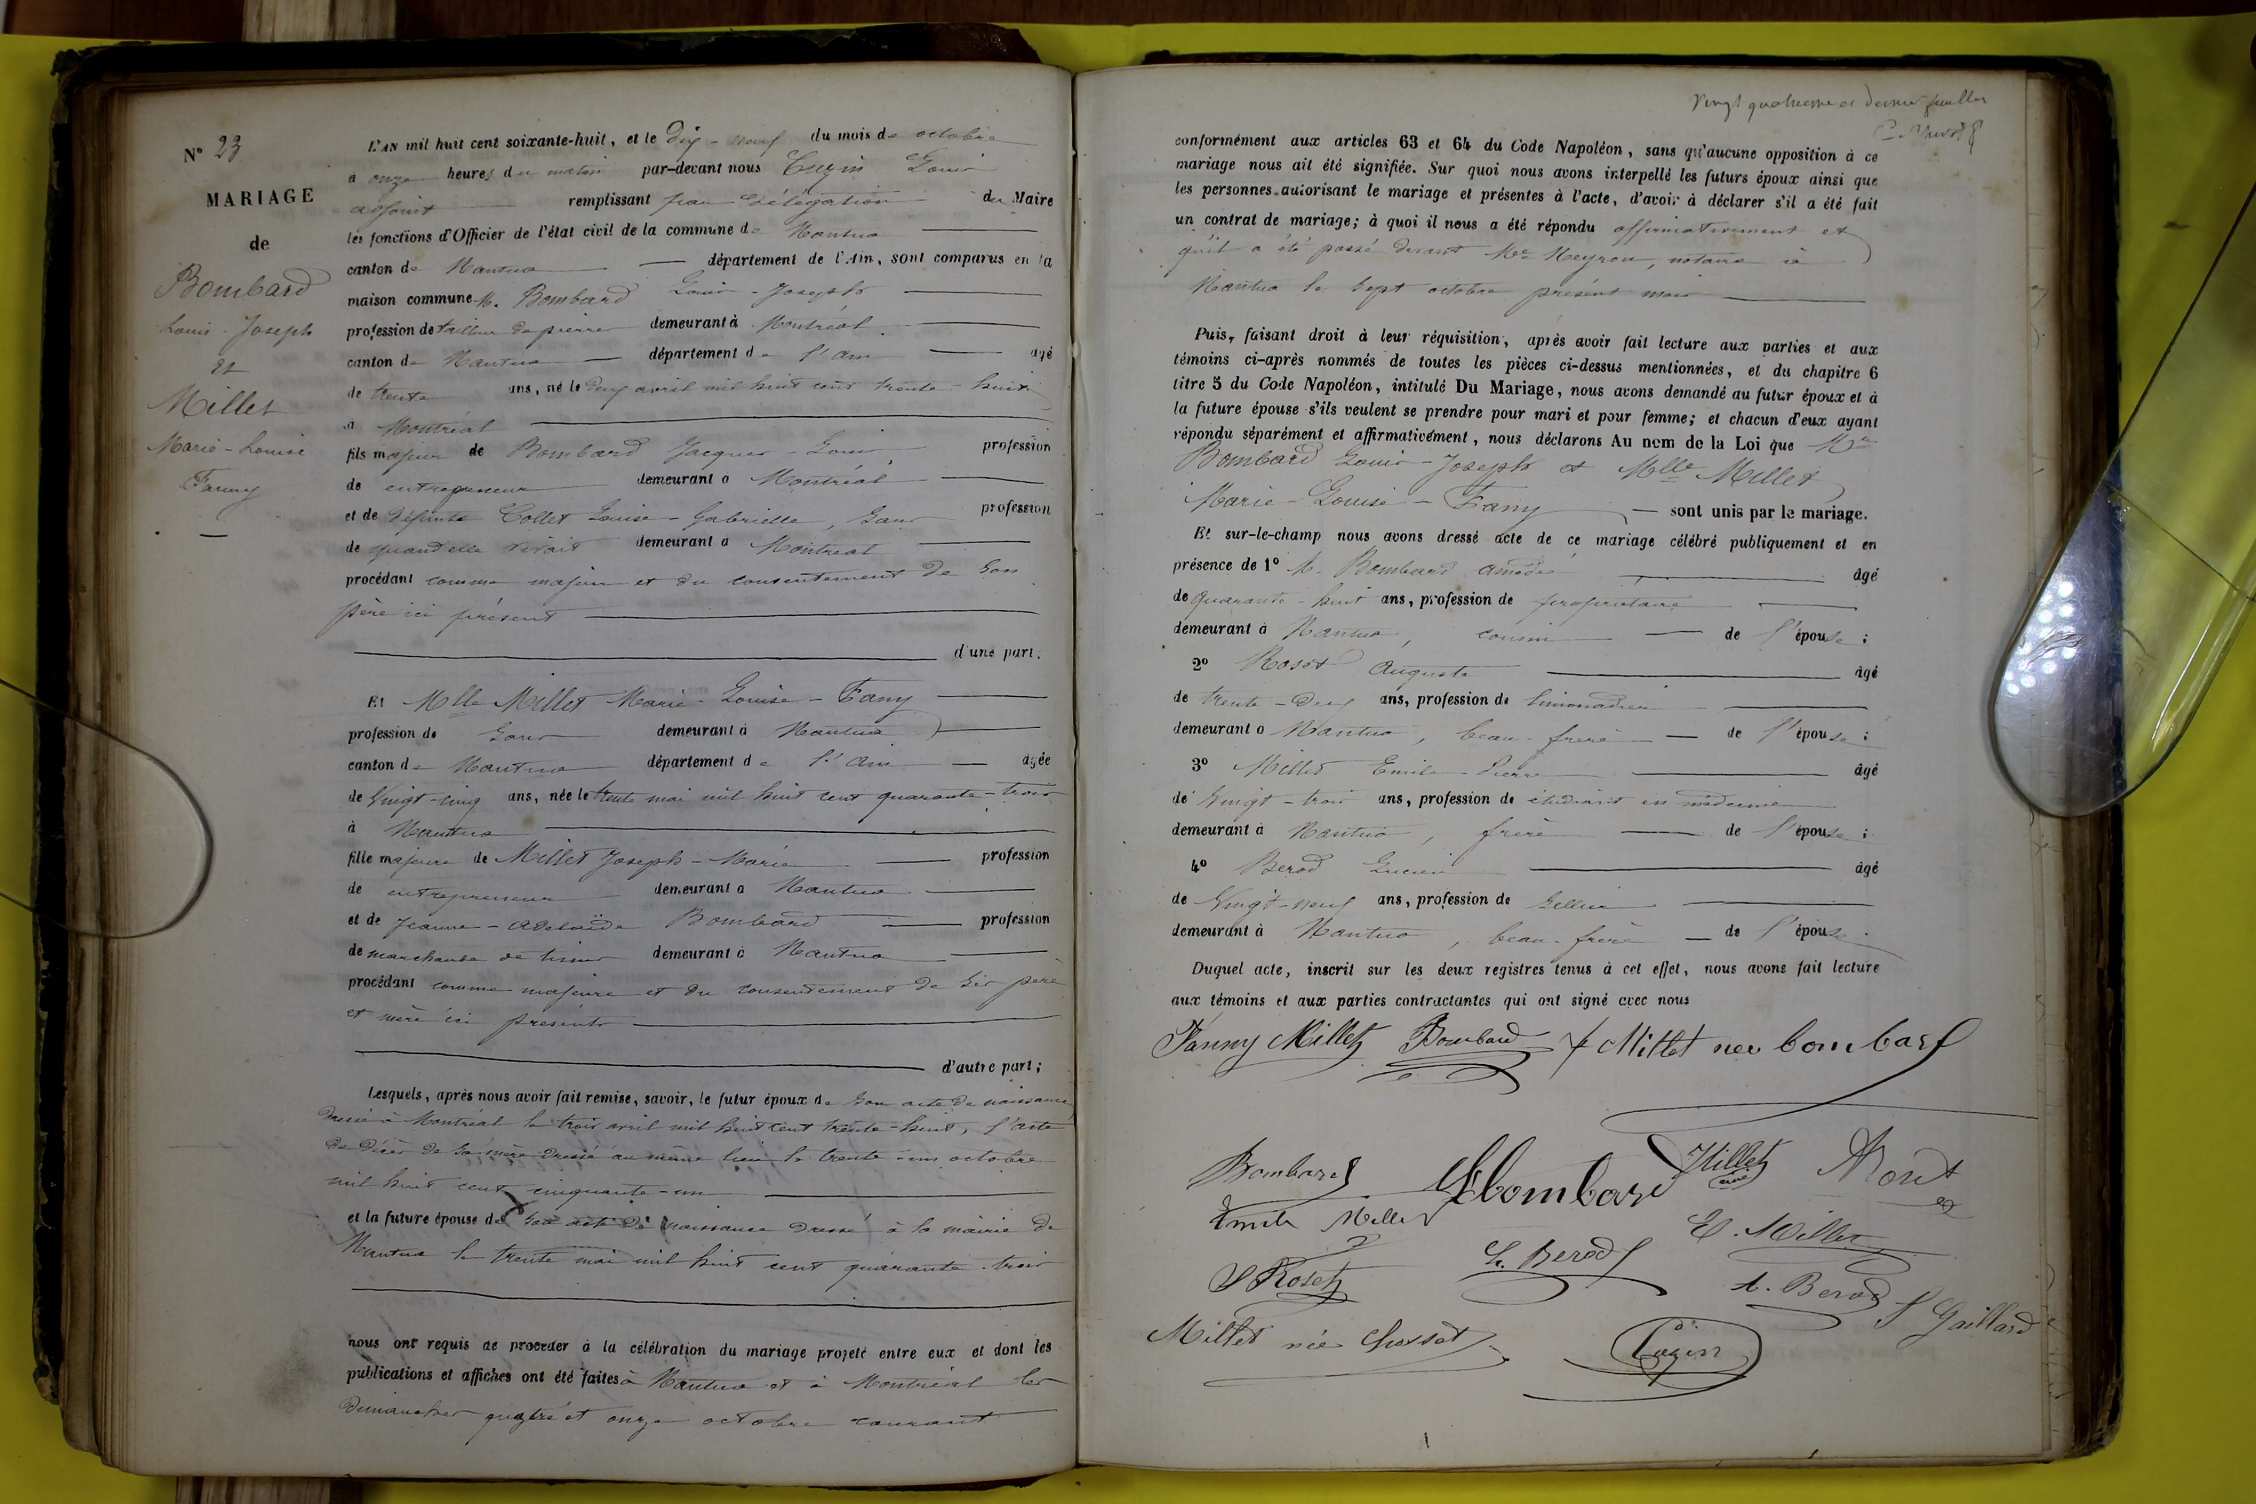 N° 23
MARIAGE
de
Bombard
Louis-Joseph
et
Millet
Marie-Louise
Fanny
L'AN mil huit cent soixante-huit, et le dix-neuf du mois de octobre
à onze heures du matin par-devant nous Cuzin Louis
adjoint remplissant par délégation du Maire
les fonctions d'Officier de l'état civil de la commune de Nantua
canton de Nantua département de l'Ain, sont comparus en la
maison commune M. Bombard Louis-Joseph
profession de tailleur de pierre demeurant à Montréal
canton de Nantua département de l'Ain âgé
de trente ans, né le deux avril mil huit cent trente-huit
à Montréal
fils majeur de Bombard Jacques-Louis profession
de entrepreneur demeurant à Montréal
et de défunte Collet Louise-Gabrielle, sans profession
de quand elle vivait demeurant à Montréal
procédant comme majeur et du consentement de son
père ici présent
d'une part.
Et Mlle Millet Marie-Louise-Fany
profession de sans demeurant à Nantua
canton de Nantua département de l'Ain âgée
de vingt-cinq ans, née le trente mai mil huit cent quarante-trois
à Nantua
fille majeure de Millet Joseph-Marie profession
de entrepreneur demeurant à Nantua
et de Jeanne-Adelaïde Bombard profession
de marchande de tissus demeurant à Nantua
procédant comme majeure et du consentement de ses père
et mère ici présents
d'autre part;
Lesquels, après nous avoir fait remise, savoir, le futur époux de son acte de naissance
dressé à Montréal le trois avril mil huit cent trente-huit, l'acte
de décès de sa mère dressé au même lieu le trente-un octobre
mil huit cent cinquante-un
et la future épouse de son acte de naissance dressé à la mairie de
Nantua le trente mai mil huit cent quarante-trois
nous ont requis de procéder à la célébration du mariage projeté entre eux et dont les
publications et affiches ont été faites à Nantua et à Montréal les
dimanches quatre et onze octobre courant
Vingt quatrieme et dernier feuillet
conformément aux articles 63 et 64 du Code Napoléon, sans qu'aucune opposition à ce
mariage nous ait été signifiée. Sur quoi nous avons interpellé les futurs époux ainsi que
les personnes autorisant le mariage et présentes à l'acte, d'avoir à déclarer s'il a été fait
un contrat de mariage; à quoi il nous a été répondu affirmativement et
qu'il a été passé devant Me Neyron, notaire à
Nantua le sept octobre présent mois
Puis, faisant droit à leur réquisition, après avoir fait lecture aux parties et aux
témoins ci-après nommés de toutes les pièces ci-dessus mentionnées, et du chapitre 6
titre 5 du Code Napoléon, intitulé Du Mariage, nous avons demandé au futur époux et à
la future épouse s'ils veulent se prendre pour mari et pour femme; et chacun d'eux ayant
répondu séparément et affirmativement, nous déclarons Au nom de la Loi que Mr
Bombard Louis-Joseph et Mlle Millet
Marie-Louise-Fany sont unis par le mariage.
Et sur-le-champ nous avons dressé acte de ce mariage célébré publiquement et en
présence de 1° M. Bombard Amédé âgé
de quarante-huit ans, profession de propriétaire
demeurant à Nantua, cousin de l'épouse;
2° Roset Auguste âgé
de trente-deux ans, profession de limonadier
demeurant à Nantua, beau-frère de l'épouse;
3° Millet Emile-Pierre âgé
de vingt-trois ans, profession de étudiant en médecine
demeurant à Nantua, frère de l'épouse;
4° Berod Lucien âgé
de vingt-neuf ans, profession de sellier
demeurant à Nantua, beau-frère de l'épouse
Duquel acte, inscrit sur les deux registres tenus à cet effet, nous avons fait lecture
aux témoins et aux parties contractantes qui ont signé avec nous
Fanny Millet Bombard Millet nee bombard
Bombard Bombard Millet
Emile Millet E. Millet
Roset L. Berod A. Berod Gaillard
Millet née Cuzin